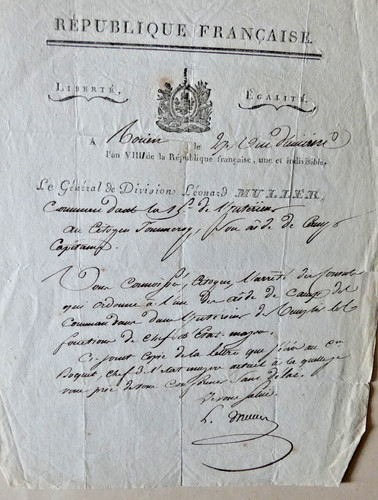 RÉPUBLIQUE FRANÇAISE.
LIBERTÉ. ÉGALITÉ.
A Rouen le 27
l'an VIII de la République française, une et indivisible.
Le Général de Division Léonard MULLER,
Commandant la 15e de l'Intérieur
au Citoyen son aide de Camp
Capitaine
Vous connoissés, Citoyen l'arrêté des Consuls
qui ordonne à l'un des aide de Camp des
Commandans dans l'intérieur de remplir les
fonctions de chef de l'Etat-major.
Ci-joint Copie de la lettre que j'écris au Cen
chef d. l'état major actuel à la quelle je
vous prie de vous conformer sans délai.
Je vous salue
L. Muller